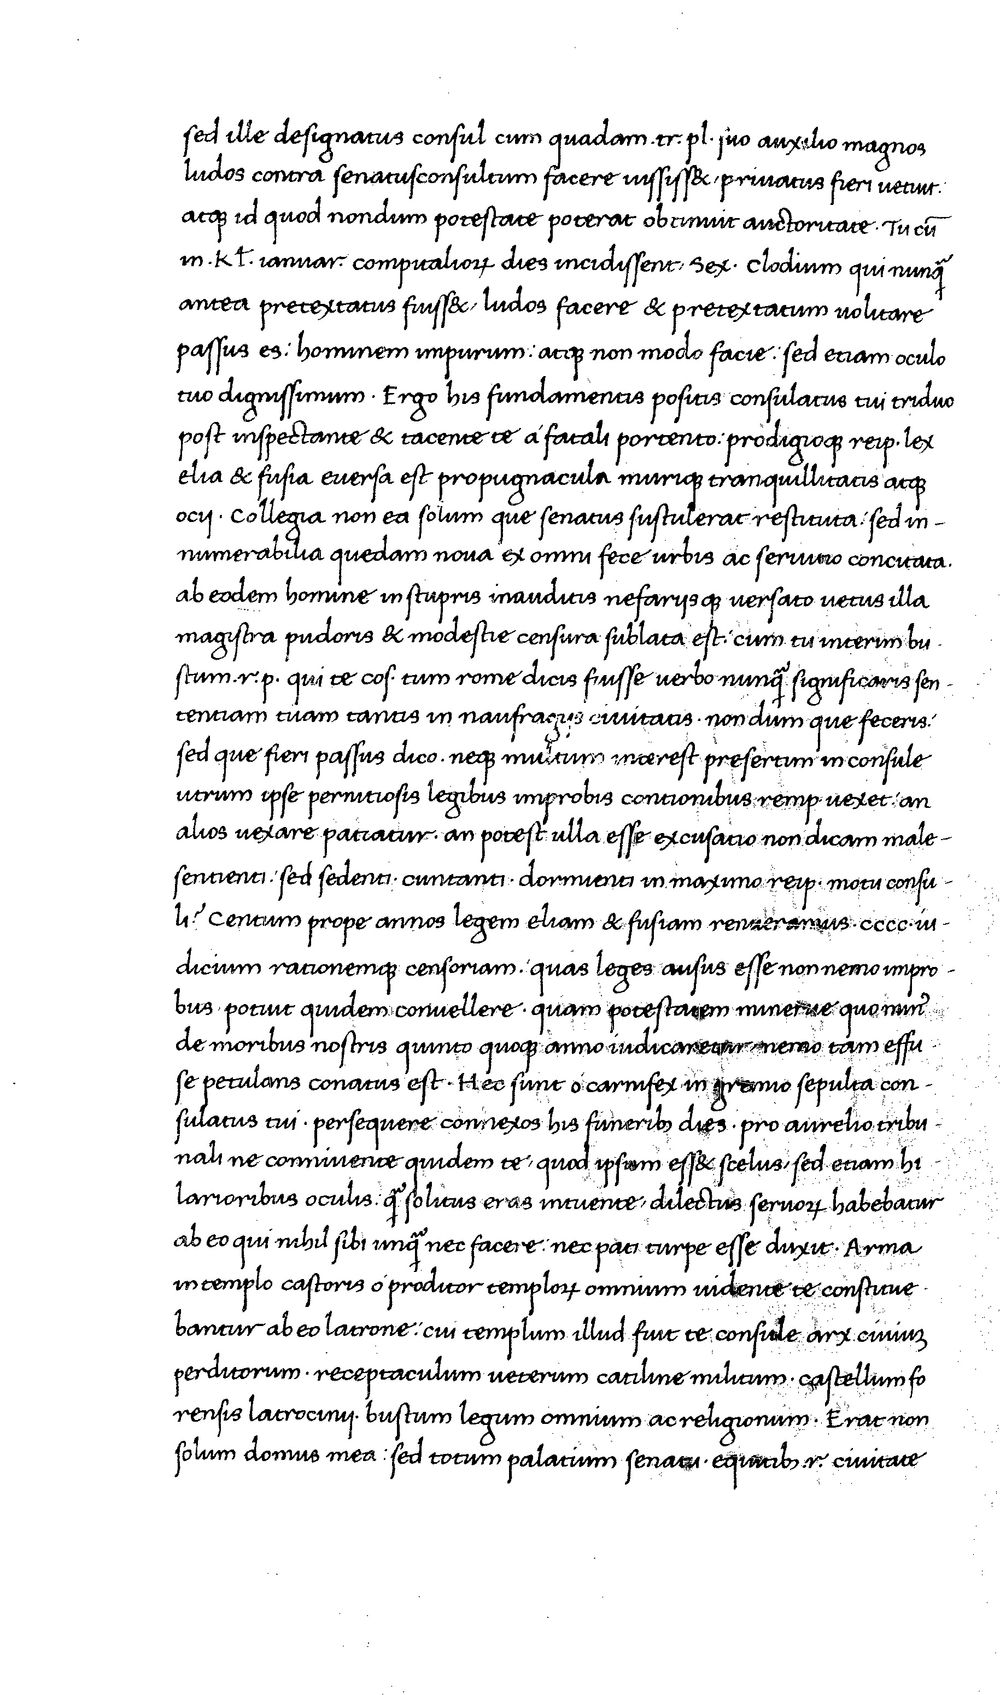 sed ille designatus consul cum quadam .tr. pl. suo auxilio magnos
ludos contra senatusconsultum facere iussiss&, priuatus fieri uetuit:
atqꝫ id quod nondum potestate poterat obtinuit auctoritate. Tu cū
in .Kł. ianuar. compitalioꝝ dies incidissent: Sex. Clodium qui nunꝗ̃
antea pretextatus fuiss&, ludos facere & pretextatum uolitare
passus es: hominem impurum: atqꝫ non modo facie: sed etiam oculo
tuo dignissimum. Ergo his fundamentis positis consulatus tui triduo
post inspectante & tacente te a fatali portento: prodigioqꝫ reip. lex
elia & fusia euersa est propugnacula muriqꝫ tranquillitatis atqꝫ
ocij. Collegia non ea solum que senatus sustulerat restituta: sed in-
numerabilia quedam noua ex omni fece urbis ac seruitio concitata.
ab eodem homine in stupris inauditis nefarijsqꝫ uersato uetus illa
magistra pudoris & modestie censura sublata est: cum tu interim bu-
stum .r. p. qui te cos. tum rome dicis fuisse uerbo nunꝗ̃ significaris sen-
tentiam tuam tantis in naufragijs ciuitatis. nondum que feceris:
sed que fieri passus dico. neqꝫ multum interest presertim in consule
utrum ipse pernitiosis legibus improbis contionibus remp. uexet: an
alios uexare patiatur. an potest ulla esse excusatio non dicam male-
sentienti: sed sedenti. cuntanti. dormienti in maximo reip. motu consu-
li? Centum prope annos legem eliam & fusiam tenueramus. cccc. iu-
dicium rationemqꝫ censoriam: quas leges ausus esse non nemo impro-
bus potuit quidem conuellere. quam potestatem minerue quo min⁹
de moribus nostris quinto quoqꝫ anno iudicaretur nemo tam effu-
se petulans conatus est. Hec sunt o carnifex in gremio sepulta con-
sulatus tui. persequere connexos his funeribꝫ dies. pro aurelio tribu-
nali ne conniuente quidem te, quod ipsum ess& scelus, sed etiam hi-
larioribus oculis: ꝗ̃ solitus eras intuente, dilectus seruoꝝ habebatur
ab eo qui nihil sibi unꝗ̃ nec facere: nec pati turpe esse duxit. Arma
in templo castoris o proditor temploꝝ omnium uidente te constitue-
bantur ab eo latrone: cui templum illud fuit te consule arx ciuiuꝫ
perditorum. receptaculum ueterum catiline militum. castellum fo
rensis latrocinij. bustum legum omnium ac religionum. Erat non
solum domus mea: sed totum palatium senatu. equitibꝫ .r. ciuitate